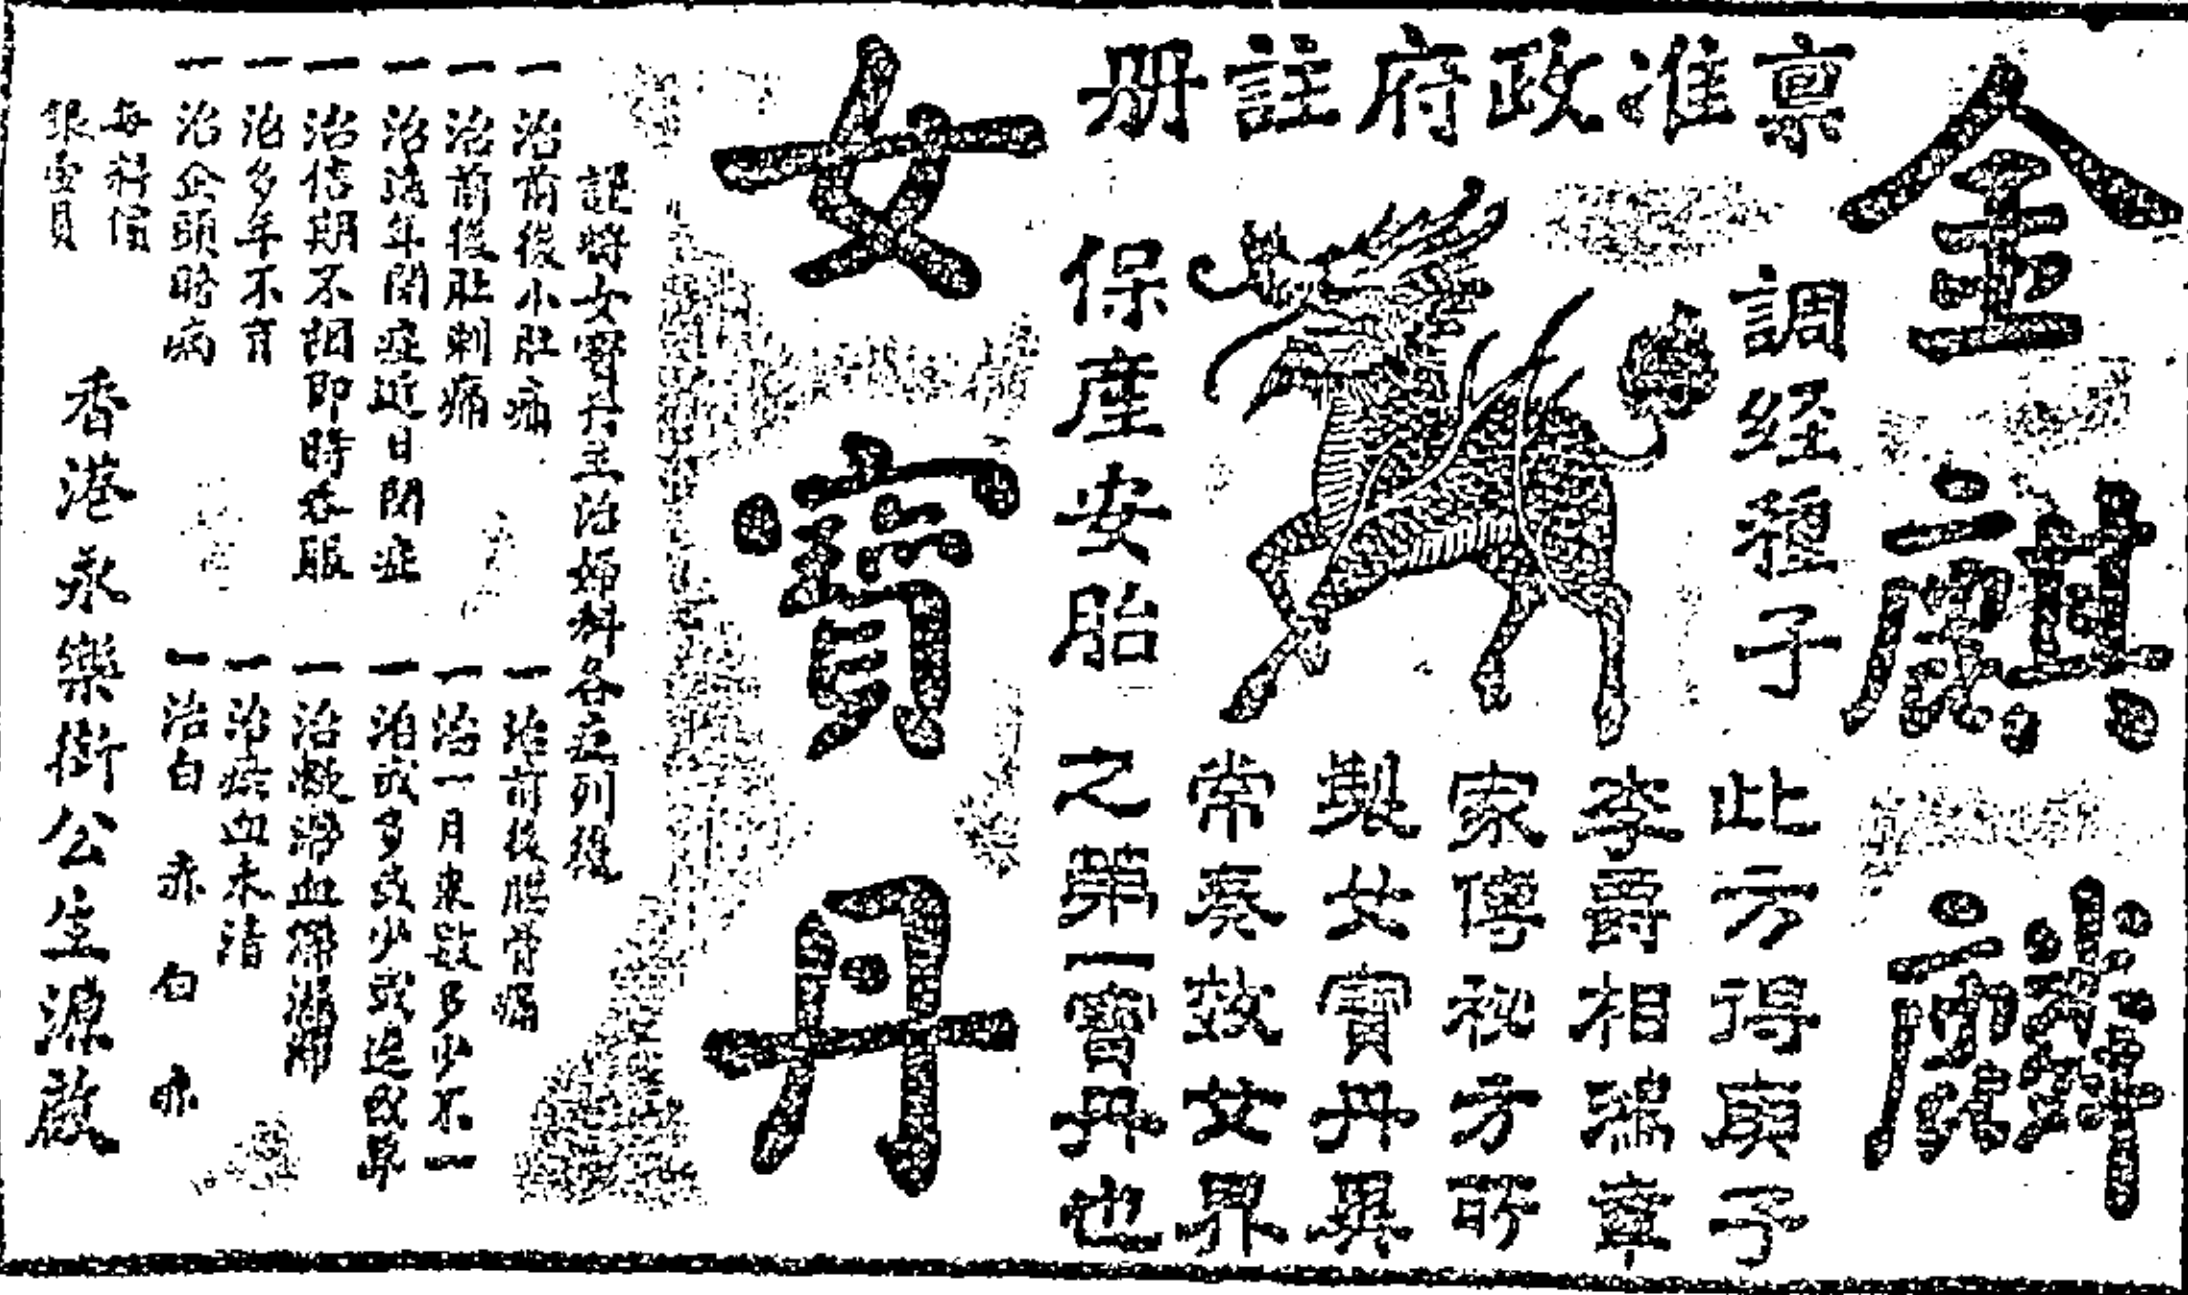 金麒麟
稟准政府註册
調经種子
保產安胎
此方得真予
李爵相鴻章
家傳祕方所
製女寶丹異
常奏效女界
之第一寶丹也
女寶丹
謹將女寶丹主治婦科各症列後
一治前後小肚痛
一治前後肚刺痛
一治遠年閉症近日閉症
一治信期不調即時吞服
一治多年不育
一治企頭暗病
一治前後腰骨痛
一治一月來數多少不一
一治或多或少或遲或早
一治凝瘀血
一治瘀血未清
一治白赤白赤
每科價
銀壹員
香港永樂街公生源啟